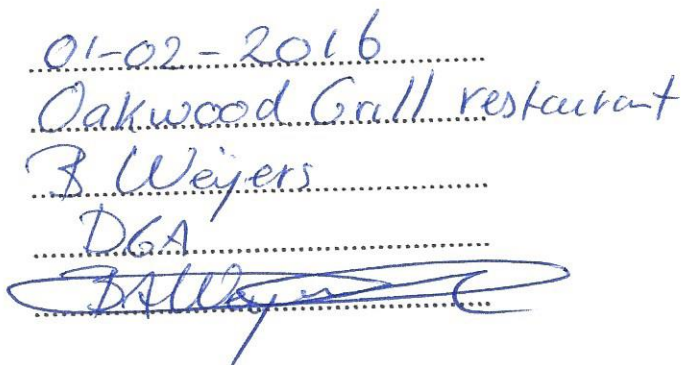 01-02-2016
Oakwood Grill restaurant
B Weijers
DGA